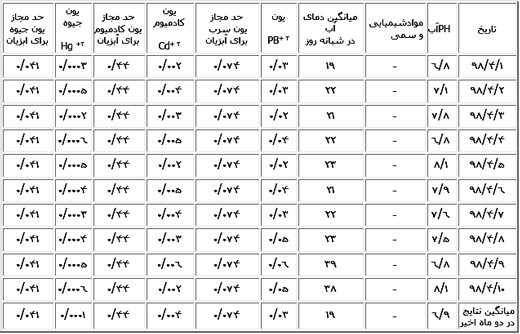 تاریخ | PHآب | موادشیمیایی و سمی | میانگین دمای آب در شبانه روز | یون PB+۲ | حد مجاز یون سرب برای آبزیان | یون کادمیوم Cd+۲ | حد مجاز یون کادمیوم برای آبزیان | یون جیوه Hg +۲ | حد مجاز یون جیوه برای ابزیان
۹۸/۴/۱ | ۶/۸ | - | ۱۹ | ۰/۰۳ | ۰/۰۷۴ | ۰/۰۰۲ | ۰/۴۴ | ۰/۰۰۰۳ | ۰/۰۴۱
۹۸/۴/۲ | ۷/۱ | - | ۲۲ | ۰/۰۳ | ۰/۰۷۴ | ۰/۰۰۴ | ۰/۴۴ | ۰/۰۰۰۵ | ۰/۰۴۱
۹۸/۴/۳ | ۷/۸ | - | ۲۱ | ۰/۰۲ | ۰/۰۷۴ | ۰/۰۰۳ | ۰/۴۴ | ۰/۰۰۰۲ | ۰/۰۴۱
۹۸/۴/۴ | ۶/۸ | - | ۲۲ | ۰/۰۴ | ۰/۰۷۴ | ۰/۰۰۵ | ۰/۴۴ | ۰/۰۰۰۶ | ۰/۰۴۱
۹۸/۴/۵ | ۸/۱ | - | ۲۳ | ۰/۰۲ | ۰/۰۷۴ | ۰/۰۰۲ | ۰/۴۴ | ۰/۰۰۰۵ | ۰/۰۴۱
۹۸/۴/۶ | ۷/۹ | - | ۲۱ | ۰/۰۴ | ۰/۰۷۴ | ۰/۰۰۵ | ۰/۴۴ | ۰/۰۰۰۴ | ۰/۰۴۱
۹۸/۴/۷ | ۷/۶ | - | ۲۲ | ۰/۰۳ | ۰/۰۷۴ | ۰/۰۰۴ | ۰/۴۴ | ۰/۰۰۰۳ | ۰/۰۴۱
۹۸/۴/۸ | ۷/۵ | - | ۲۳ | ۰/۰۵ | ۰/۰۷۴ | ۰/۰۰۳ | ۰/۴۴ | ۰/۰۰۰۴ | ۰/۰۴۱
۹۸/۴/۹ | ۶/۸ | - | ۳۹ | ۰/۰۶ | ۰/۰۷۴ | ۰/۰۰۶ | ۰/۴۴ | ۰/۰۰۰۵ | ۰/۰۴۱
۹۸/۴/۱۰ | ۸/۱ | - | ۳۸ | ۰/۰۵ | ۰/۰۷۴ | ۰/۰۰۲ | ۰/۴۴ | ۰/۰۰۰۶ | ۰/۰۴۱
میانگین نتایج در دو ماه اخیر | ۶/۹ | - | ۱۹ | ۰/۰۳ | ۰/۰۷۴ | ۰/۰۰۴ | ۰/۴۴ | ۰/۰۰۰۱ | ۰/۰۴۱